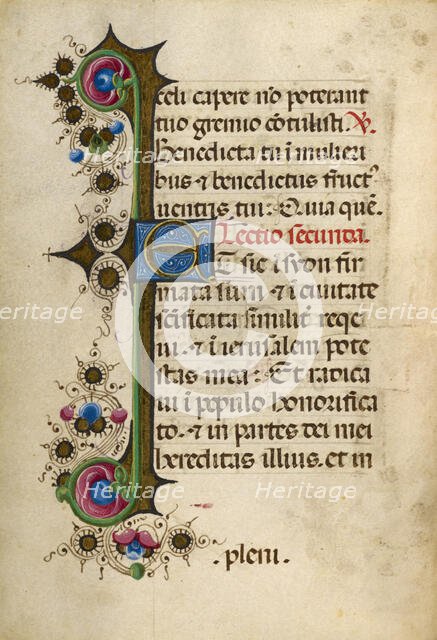 celi capere nō poterant
tuo gremio cōtulisti. ℣.
Benedicta tu ī mulieri
bus ⁊ benedictus fruct᷒
uentris tui: Quia quē.
Lectio secunda.
ET sic ī syon fir
mata sum ⁊ ī ciuitate
sc̄ificata similit̄ reqe
ui. ⁊ ī ierusalem pote
stas mea: Et radica
ui ī populo honorifica
to. ⁊ in partes dei mei
hereditas illius. et in
.pleni.
Heritage
Images